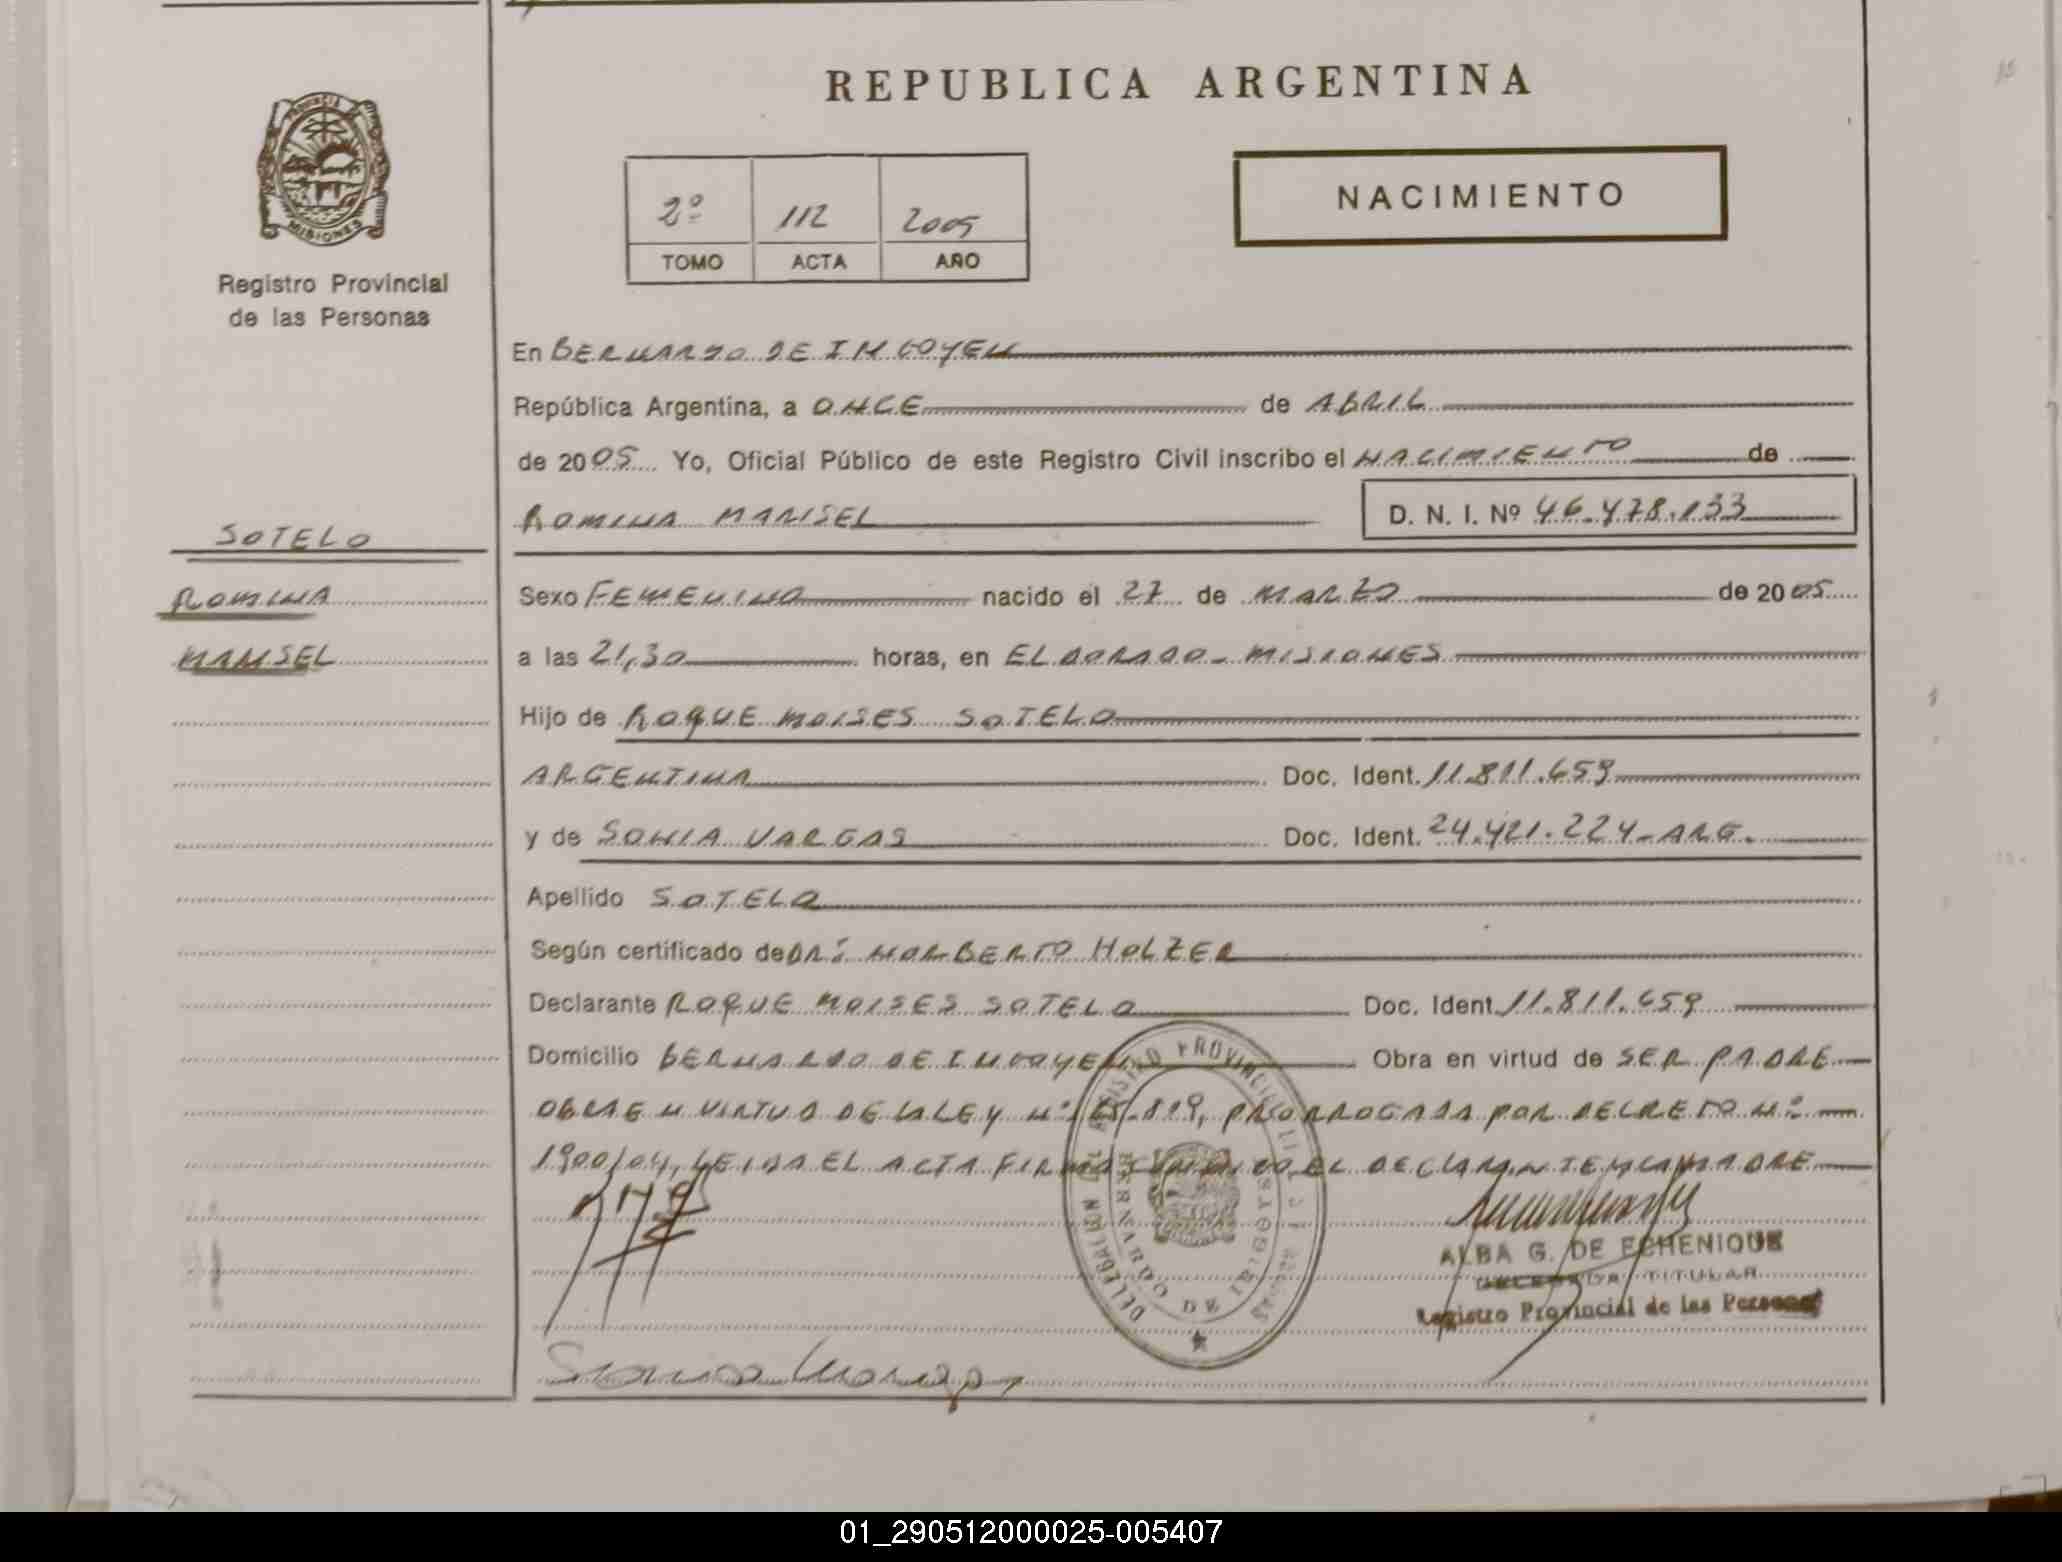 REPUBLICA ARGENTINA
PROVINCIA
MISIONES
Registro Provincial
de las Personas
2º 112 2005
TOMO ACTA AÑO
NACIMIENTO
En BERNARDO DE IRIGOYEN
República Argentina, a ONCE de ABRIL
de 2005 Yo, Oficial Público de este Registro Civil inscribo el NACIMIENTO de
ROMINA MARISEL D. N. I. Nº 46.478.133
SOTELO
ROMINA
MARISEL
Sexo FEMENINO nacido el 27 de MARZO de 2005
a las 21,30 horas, en ELDORADO - MISIONES
Hijo de ROQUE MOISES SOTELO
ARGENTINA Doc. Ident. 11.811.659
y de SONIA VARGAS Doc. Ident. 24.421.224 - ARG.
Apellido SOTELO
Según certificado de DR: NORBERTO HOLZER
Declarante ROQUE MOISES SOTELO Doc. Ident. 11.811.659
Domicilio BERNARDO DE IRIGOYEN Obra en virtud de SER PADRE
OBRA EN VIRTUD DE LA LEY Nº 25.819, PRORROGADA POR DECRETO Nº
1900/04, LEIDA EL ACTA FIRMAN CONMIGO EL DECLARANTE Y LA MADRE
REGISTRO PROVINCIAL DE LAS PERSONAS
DELEGACION
BERNARDO DE IRIGOYEN
ALBA G. DE ECHENIQUE
DELEGADA TITULAR
Registro Provincial de las Personas
Sonia Vargas
01_290512000025-005407